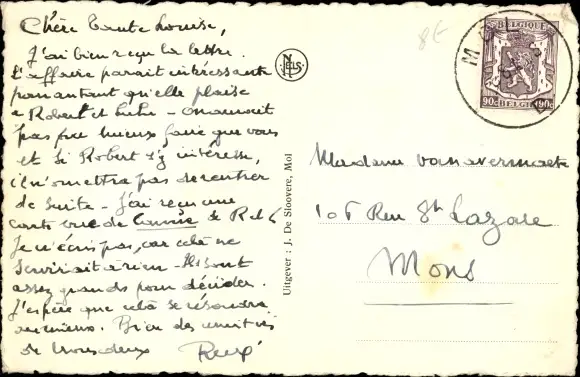 Chère Tante Louise,
J'ai bien reçu ta lettre.
L'affaire parait intéressante
pour autant qu'elle plaise
à Robert et Lulu - on aurait
pas pu mieux faire que vous
et si Robert s'y intéresse,
il n'omettra pas de rentrer
de suite - J'ai reçu une
carte vue de
Je n'écris pas, car cela ne
servirait à rien - Ils sont
assez grands pour décider.
J'espère que cela se résoudra
au mieux. Bien des amitiés
de nous deux
8€
NELS
Uitgever : J. De Sloovere, Mol
BELGIQUE
90c BELGIË 90c
Madame Vanavermaete
105 Rue St Lazare
Mons